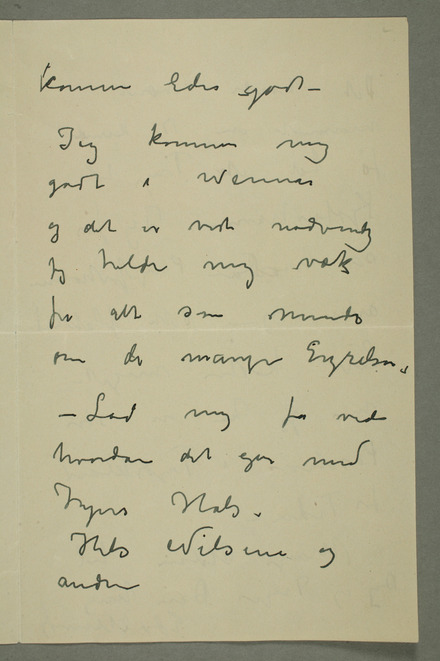 komme Eder godt –
Jeg kommer mig
godt i Wermes
og det er vist nødvendig
jeg holder mig væk
fra alt som minder
om de mange Ergrelser.
– Lad mig få vide
hvordan det går med
Ingers Hals.
Hils Nilsine og
andre